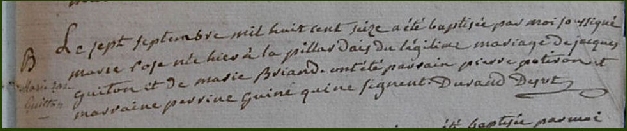 Le sept septembre mil huit cent seize a été baptisée par moi soussigné
B marie rose née hier à la pillardais du légitime mariage de jacques
guiton et de marie Briand. ont été parrain pierre potiron et
marraine perrine Guine qui ne signent. Durand Desvt
été baptisée par moi